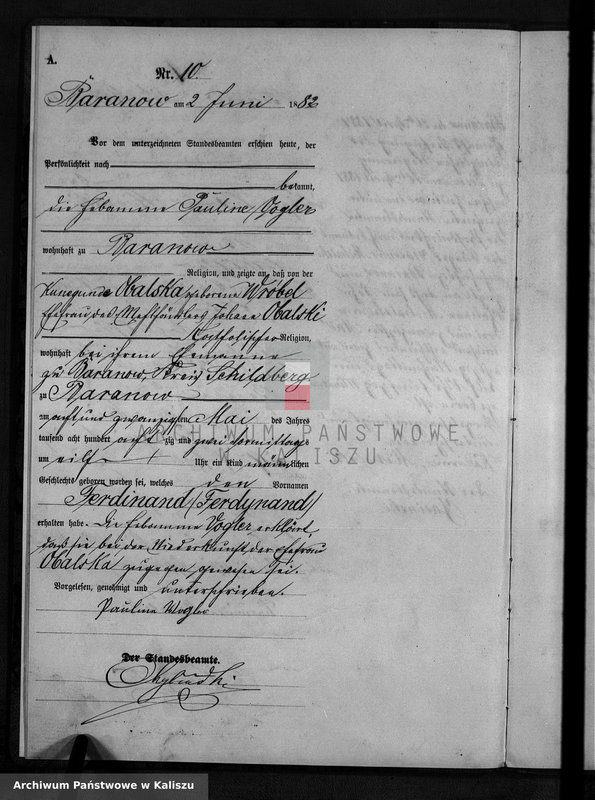 A.
Nr. 10.
Baranow am 2 Juni 1882
Vor dem unterzeichneten Standesbeamten erschien heute, der
Persönlichkeit nach
bekannt,
die Hebamme Pauline Vogler
wohnhaft zu Baranow
Religion, und zeigte an, daß von der
Kunegunde Obalska geborene Wróbel
Ehefrau des Mehlhändlers Johann Obalski
Katholischer Religion,
wohnhaft bei ihrem Ehemanne
zu Baranow, Kreis Schildberg
zu Baranow
am acht und zwanzigsten Mai des Jahres
tausend acht hundert acht zig und zwei Vormittags
um eilf Uhr ein Kind männlichen
Geschlechts geboren worden sei, welches den Vornamen
Ferdinand /Ferdynand/
erhalten habe. Die Hebamme Vogler erklärt,
daß sie bei der Niederkunft der Ehefrau
Obalska zugegen gewesen sei.
Vorgelesen, genehmigt und unterschrieben.
Pauline Vogler
Der Standesbeamte.
ARCHIWUM PAŃSTWOWE
W KALISZU
Archiwum Państwowe w Kaliszu